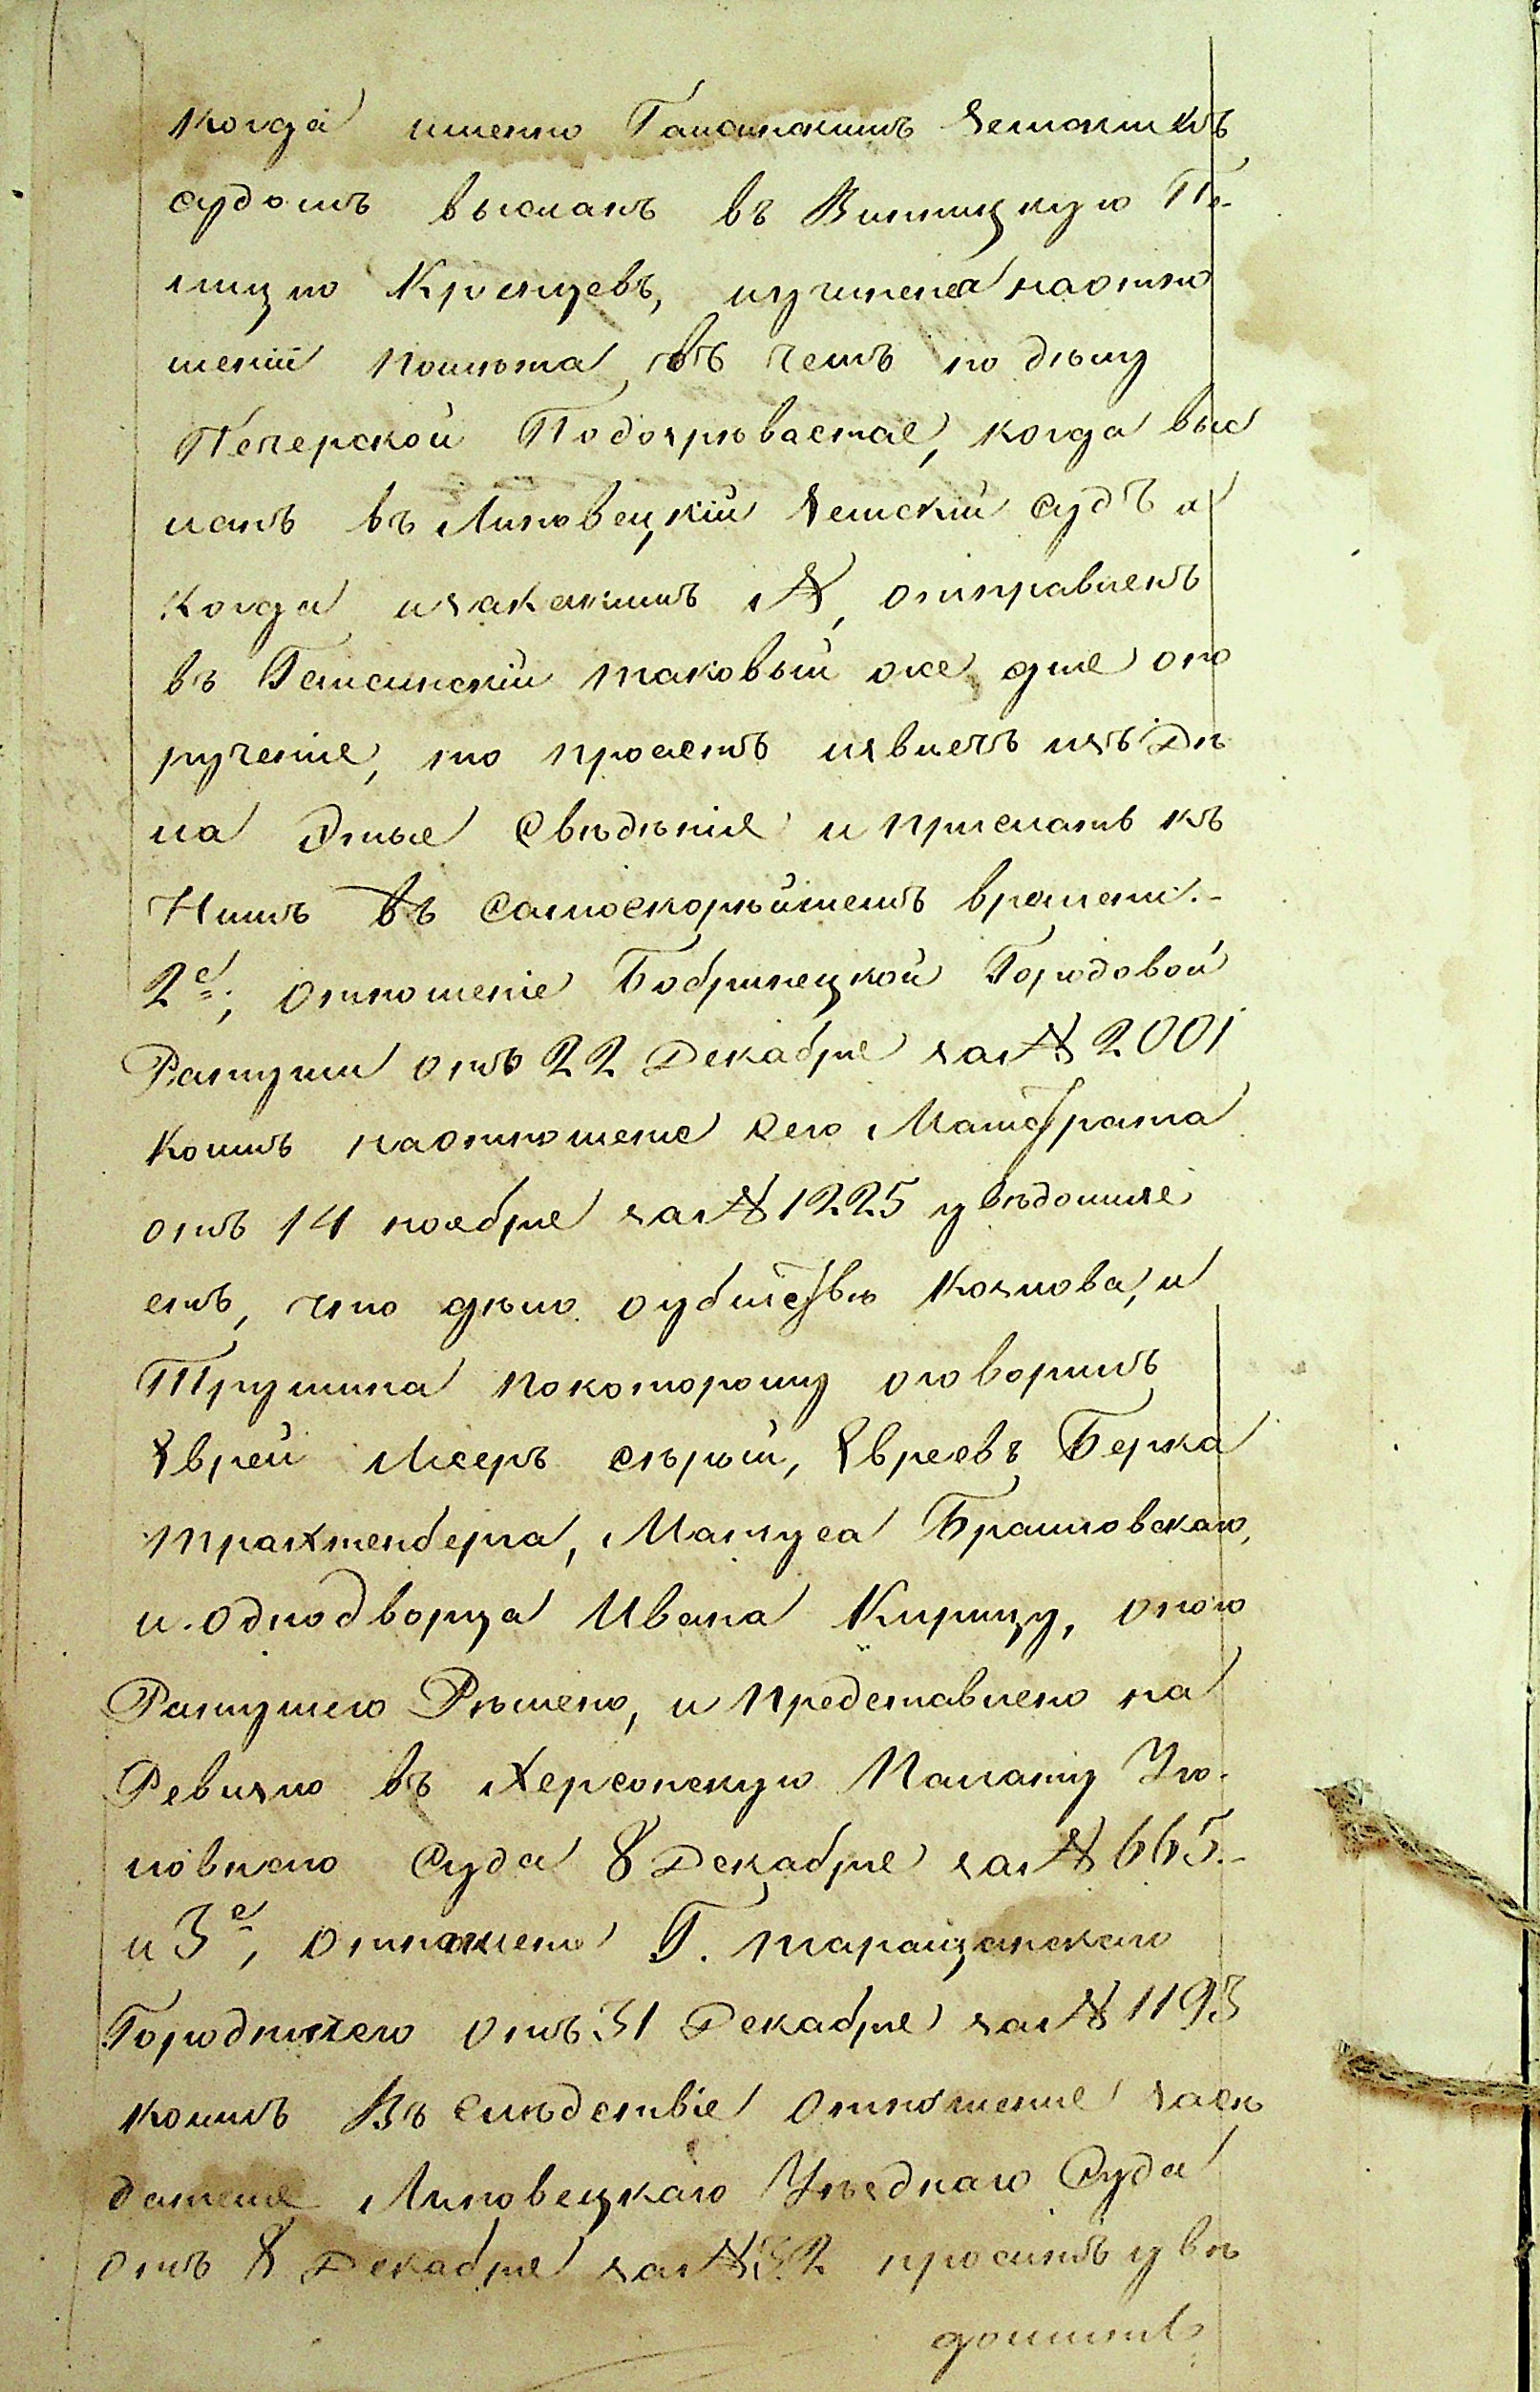 когда именно Гайсинскимъ Земскимъ
судомъ высланъ въ Винницкую По-
лицию Кравцевъ, изучинена наотно
шении помѣта, въ чемъ по дѣлу
Печерской Подозрѣвается, когда выс
ланъ въ Липовецкій Земскій судъ и
когда изакакимъ № отправленъ
въ Гайсинскій таковый же для опо
рученія, то проситъ извлечь изъ Дѣ
ла Этые Свѣдѣнія и прислать къ
Нимъ въ Самоскорѣйшемъ времени.-
2е; Отношеніе Бобринецкой Городовой
Ратуши отъ 22 Декабря за № 2001
коимъ наотношеніе сего Магистрата
отъ 14 ноября за № 1225 увѣдомляе
етъ, что дѣло оубійствѣ Козлова, и
Трушина покоторому оговоритъ
Еврей Лейзеръ сѣрый, Евреевъ Берка
Трахтенберга, Матуса Браиловскаго,
и Однодворца Ивана Кирицу, оною
Ратушею Рѣшено, и представлено на
Ревизію въ Херсонскую Палату Уго-
ловнаго Суда 8 Декабря за № 665.-
и 3е, Отношение Г. Таращанскаго
Городничего Отъ 31 Декабря за № 1193
коимъ Въ слѣдствіе Отношения засѣ
дателя Липовецкаго Уѣзднаго Суда
отъ 8 Декабря за № 32 проситъ увѣ
домить